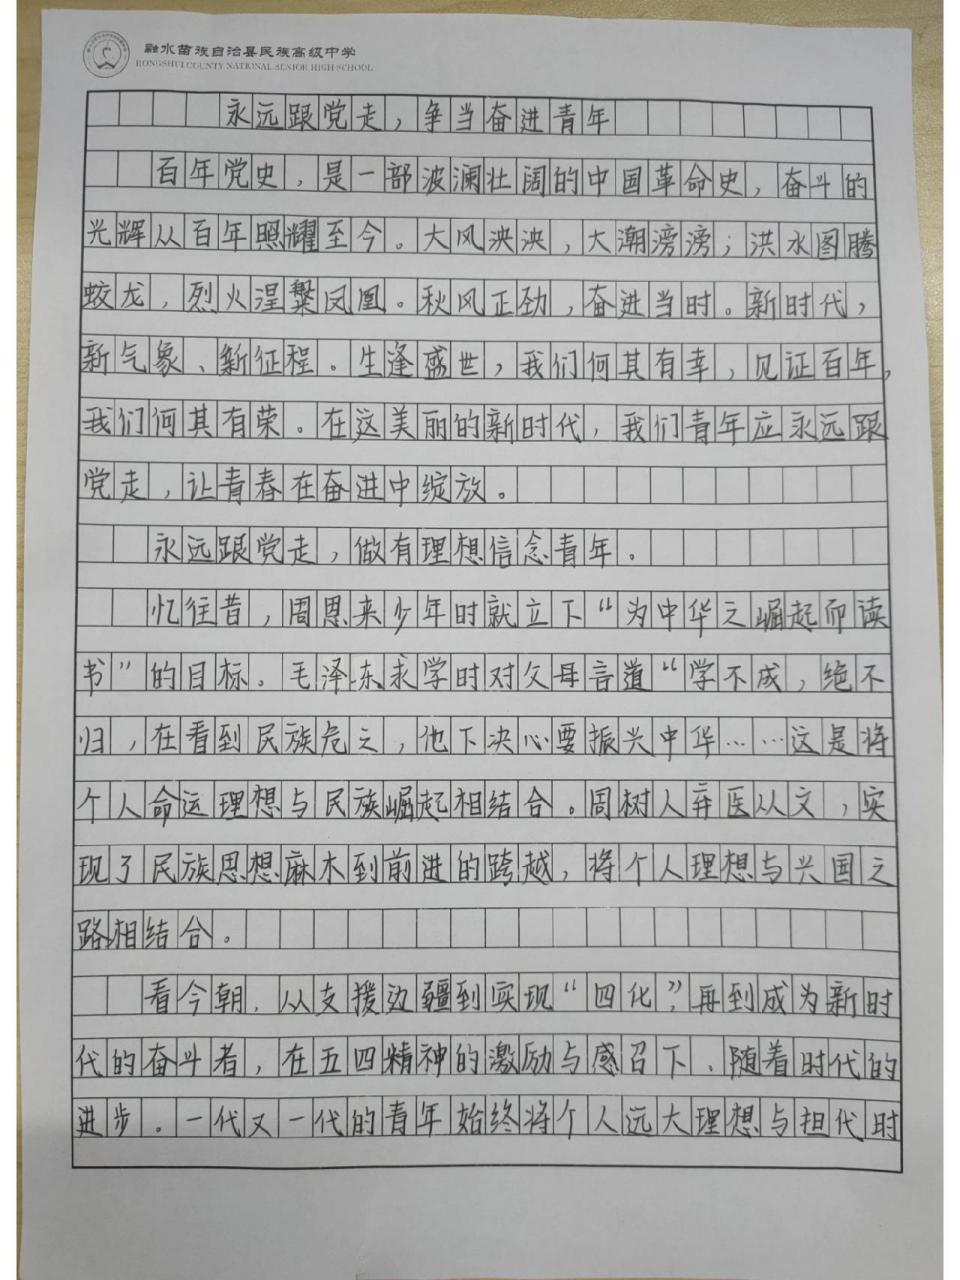 融水苗族自治县民族高级中学
RONGSHUI COUNTY NATIONAL SENIOR HIGH SCHOOL
永远跟党走，争当奋进青年
百年党史，是一部波澜壮阔的中国革命史，奋斗的
光辉从百年照耀至今。大风泱泱，大潮滂滂；洪水图腾
蛟龙，烈火涅槃凤凰。秋风正劲，奋进当时。新时代，
新气象、新征程。生逢盛世，我们何其有幸，见证百年，
我们何其有荣。在这美丽的新时代，我们青年应永远跟
党走，让青春在奋进中绽放。
永远跟党走，做有理想信念青年。
忆往昔，周恩来少年时就立下“为中华之崛起而读
书”的目标。毛泽东求学时对父母言道“学不成，绝不
归，在看到民族危之，他下决心要振兴中华……这是将
个人命运理想与民族崛起相结合。周树人弃医从文，实
现了民族思想麻木到前进的跨越，将个人理想与兴国之
路相结合。
看今朝，从支援边疆到实现“四化”，再到成为新时
代的奋斗者，在五四精神的激励与感召下、随着时代的
进步。一代又一代的青年始终将个人远大理想与担代时